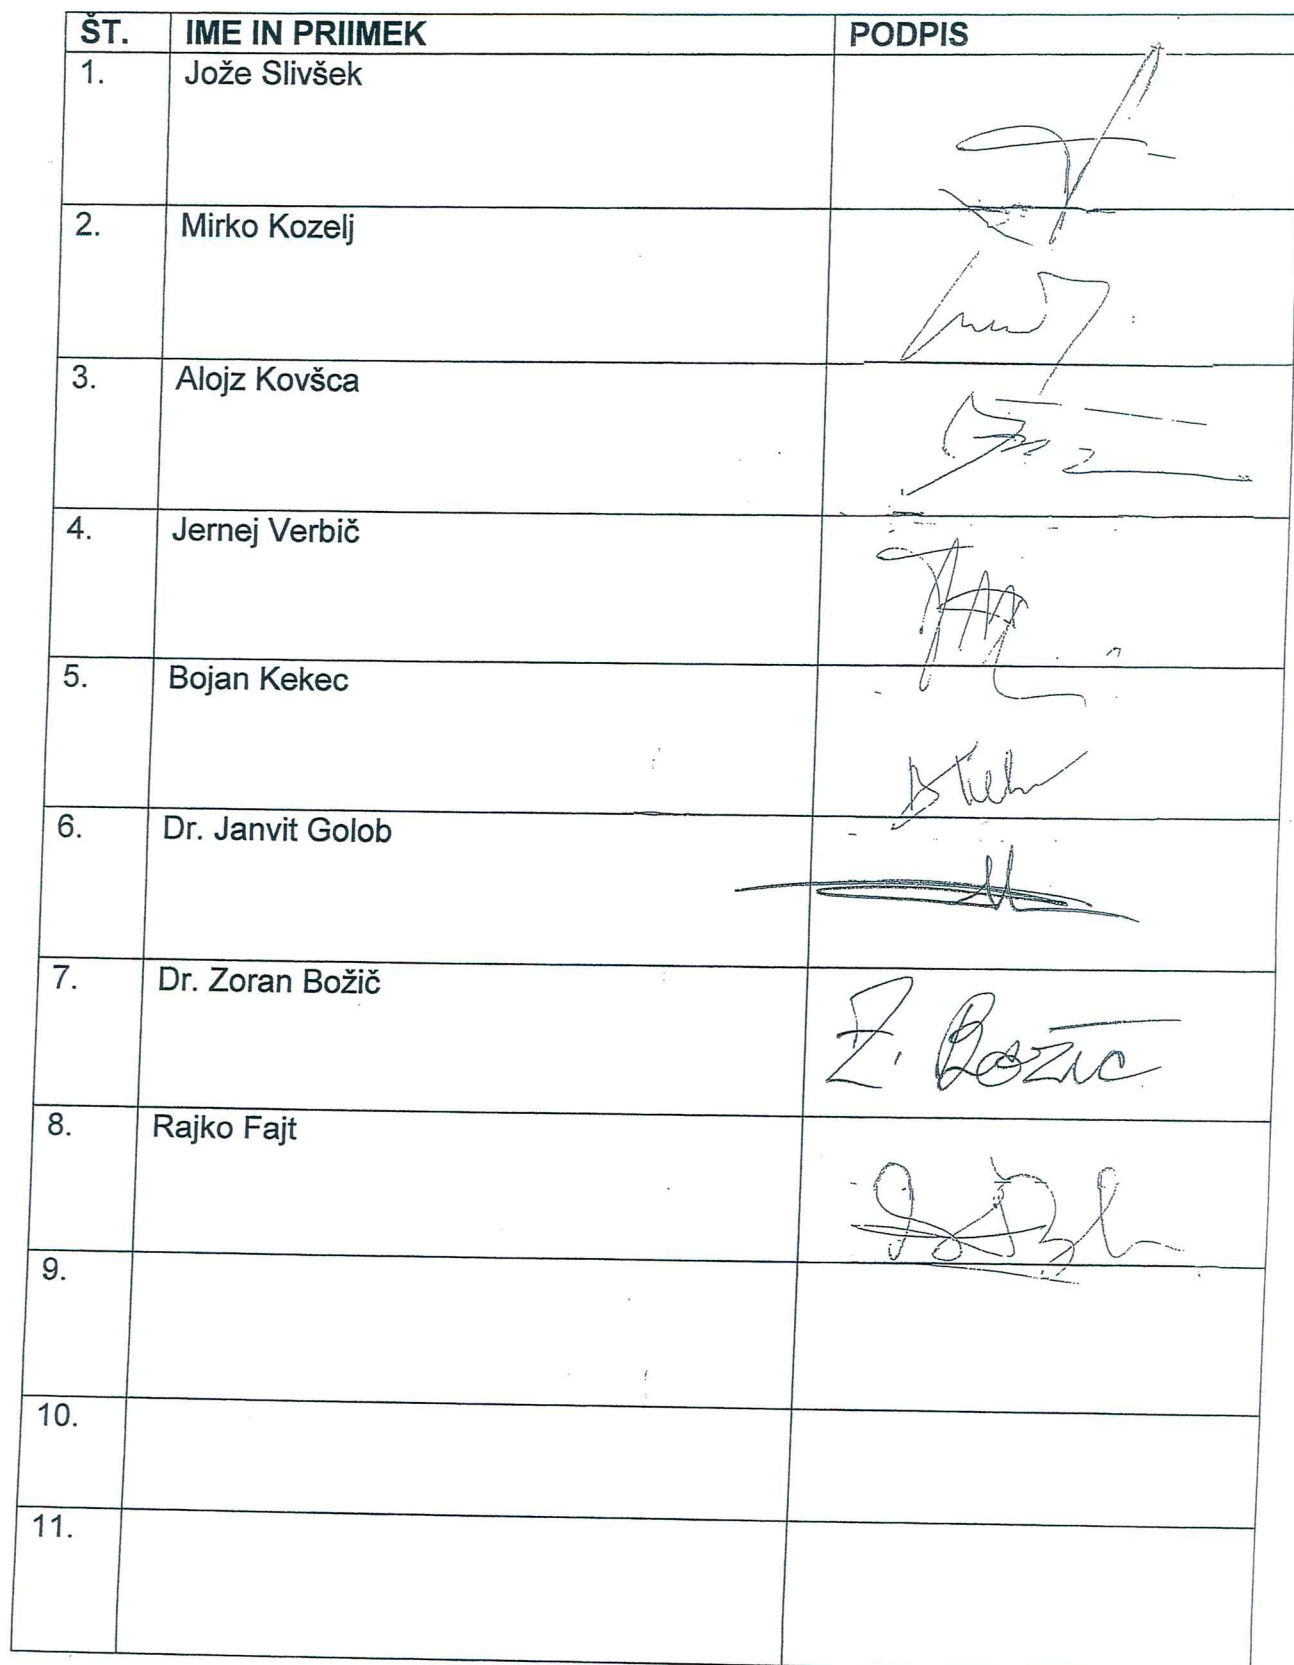 ŠT. IME IN PRIIMEK PODPIS
1. Jože Slivšek
2. Mirko Kozelj
3. Alojz Kovšca
4. Jernej Verbič
5. Bojan Kekec
6. Dr. Janvit Golob
7. Dr. Zoran Božič Z. Božič
8. Rajko Fajt
9.
10.
11.